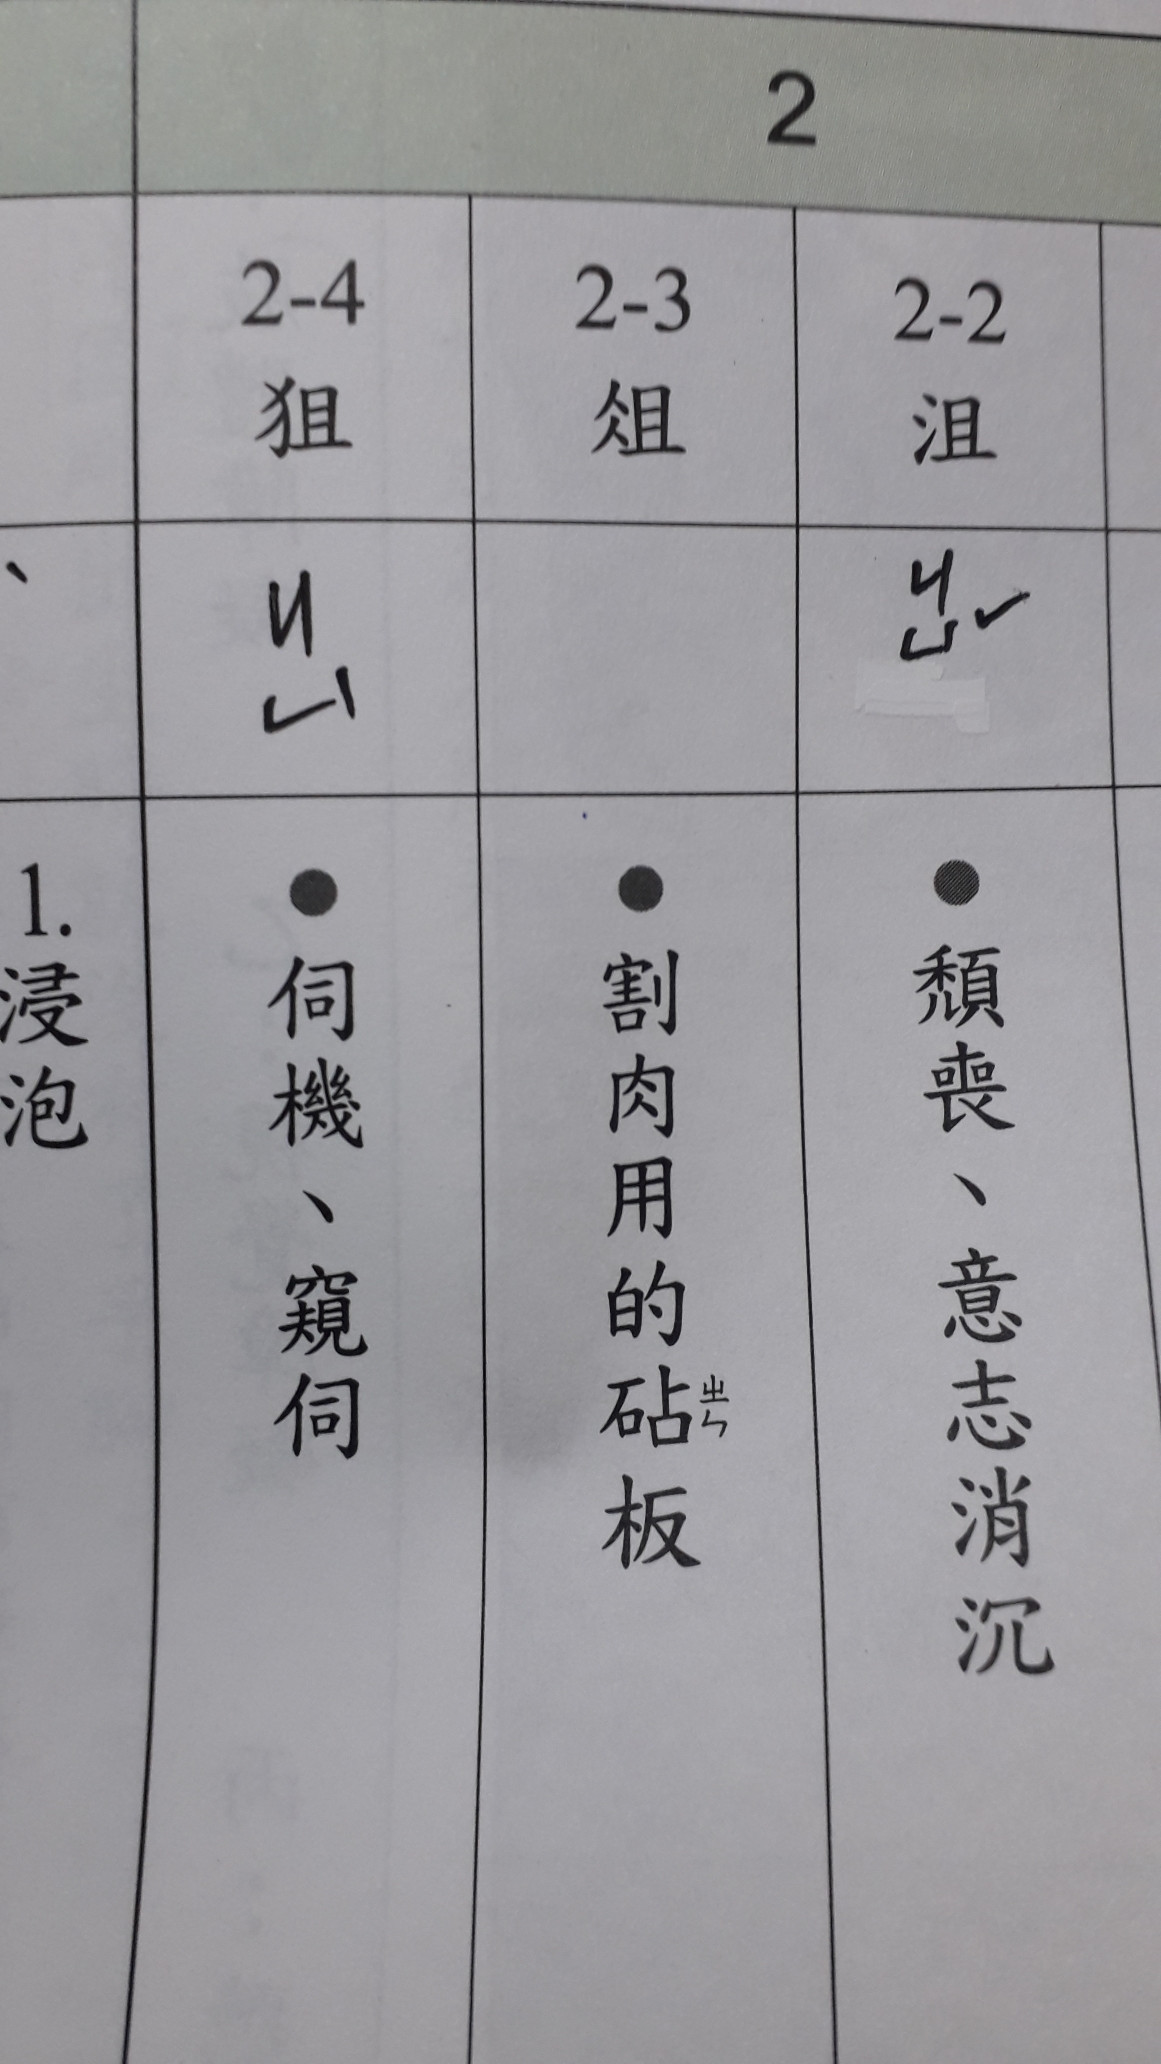 2
2-2
沮
ㄐㄩˇ
頹喪、意志消沉
2-3
俎
割肉用的砧ㄓㄣ板
2-4
狙
ㄐㄩ
伺機、窺伺
ˋ
1.浸泡